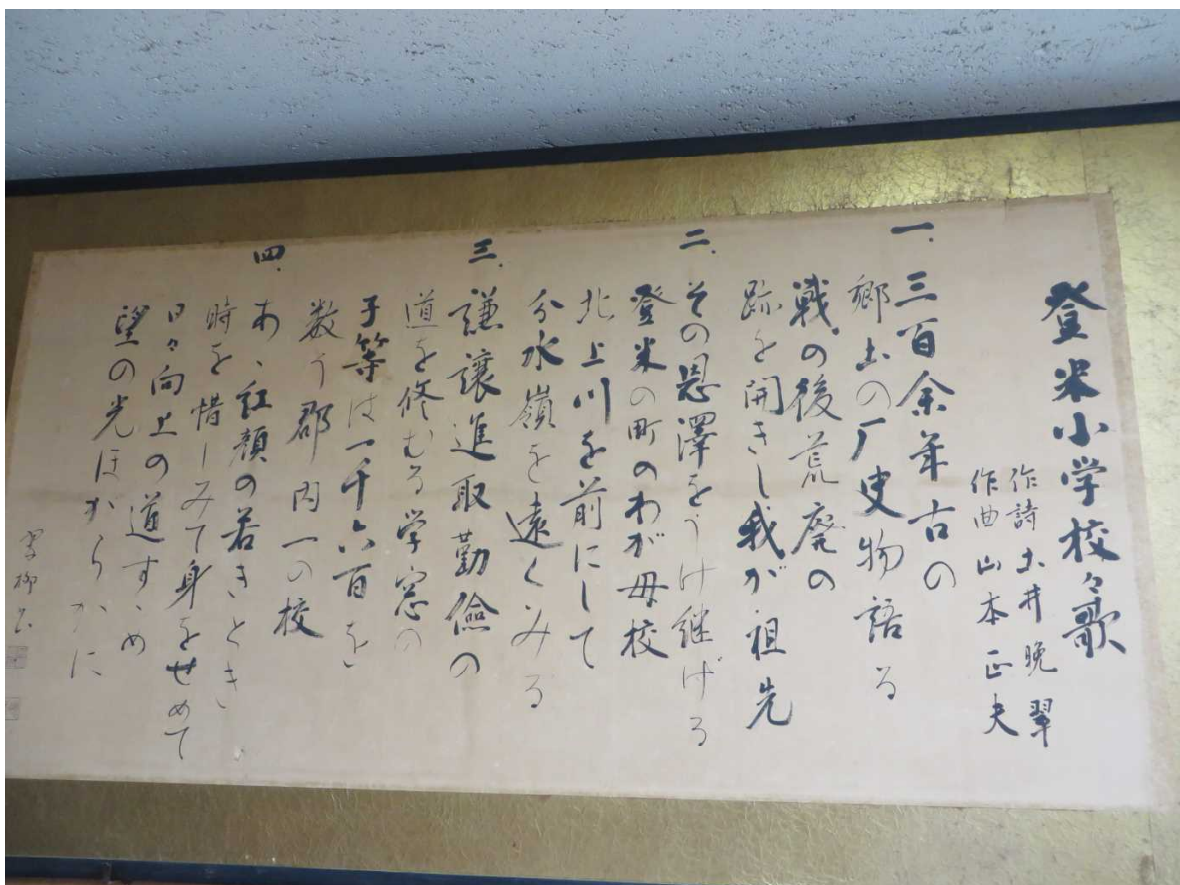 登米小学校々歌
作詩 土井晩翠
作曲 山本正夫
一、三百余年古の
郷土の厂史物語る
戦の後荒廃の
跡を開きし我が祖先
二、その恩澤をうけ継げる
登米の町のわが母校
北上川を前にして
分水嶺を遠くみる
三、謙譲進取勤儉の
道を修むる学窓の
子等は一千六百を
数う郡内一の校
四、あゝ紅顔の若きとき
時を惜しみて身をせめて
日々向上の道すゝめ
望の光ほがらかに